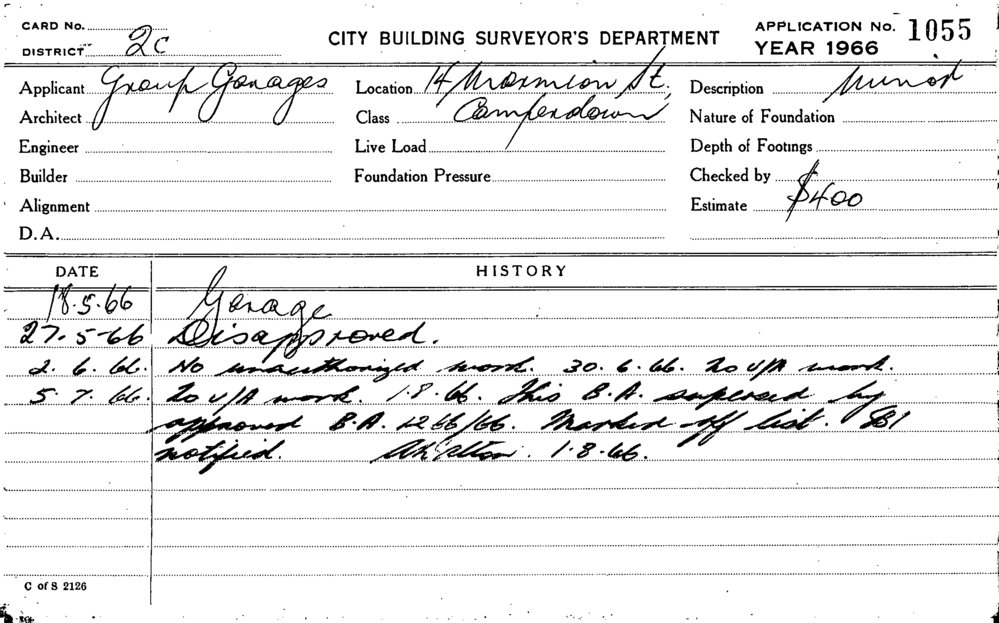 CARD No.
DISTRICT 2c
CITY BUILDING SURVEYOR'S DEPARTMENT
APPLICATION No. 1055
YEAR 1966
Applicant Group Garages
Location 14 Marmion St,
Description Minor
Architect
Class Camperdown
Nature of Foundation
Engineer
Live Load
Depth of Footings
Builder
Foundation Pressure
Checked by
Alignment
Estimate $400
D.A.
DATE HISTORY
18.5.66 Garage
27.5-66 Disapproved.
2.6.66. No unauthorized work. 30.6.66. No U/A work.
5.7.66. No U/A work. 1.8.66. This B.A. supersed by
approved B.A. 1266/66. Marked off list. SB1
notified. 1.8.66.
C of S 2126